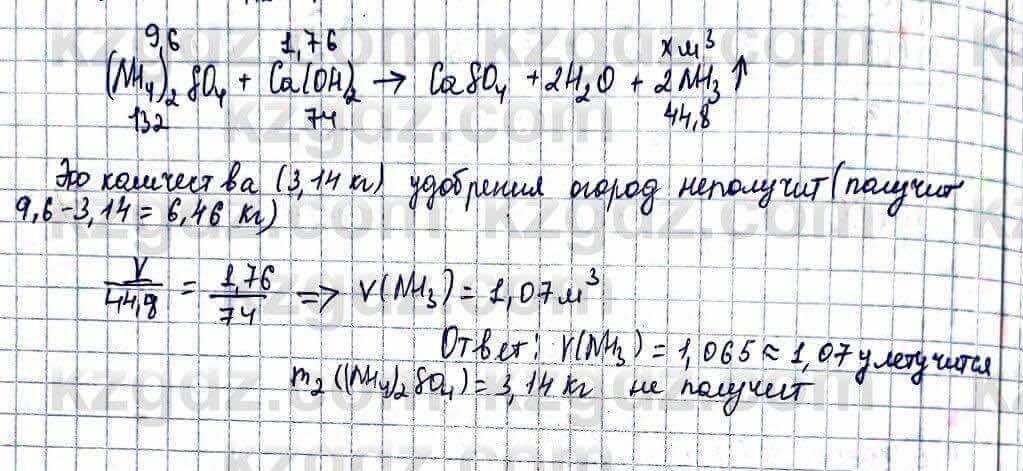 9,6 1,76 x м³
(NH₄)₂SO₄ + Ca(OH)₂ → CaSO₄ + 2H₂O + 2NH₃↑
132 74 44,8
Это количества (3,14 кг) удобрения огород неполучит (получит
9,6-3,14 = 6,46 кг)
V/44,8 = 1,76/74 => V(NH₃) = 1,07 м³
Ответ: V(NH₃) = 1,065 ≈ 1,07 улетучится
m₂((NH₄)₂SO₄) = 3,14 кг не получит